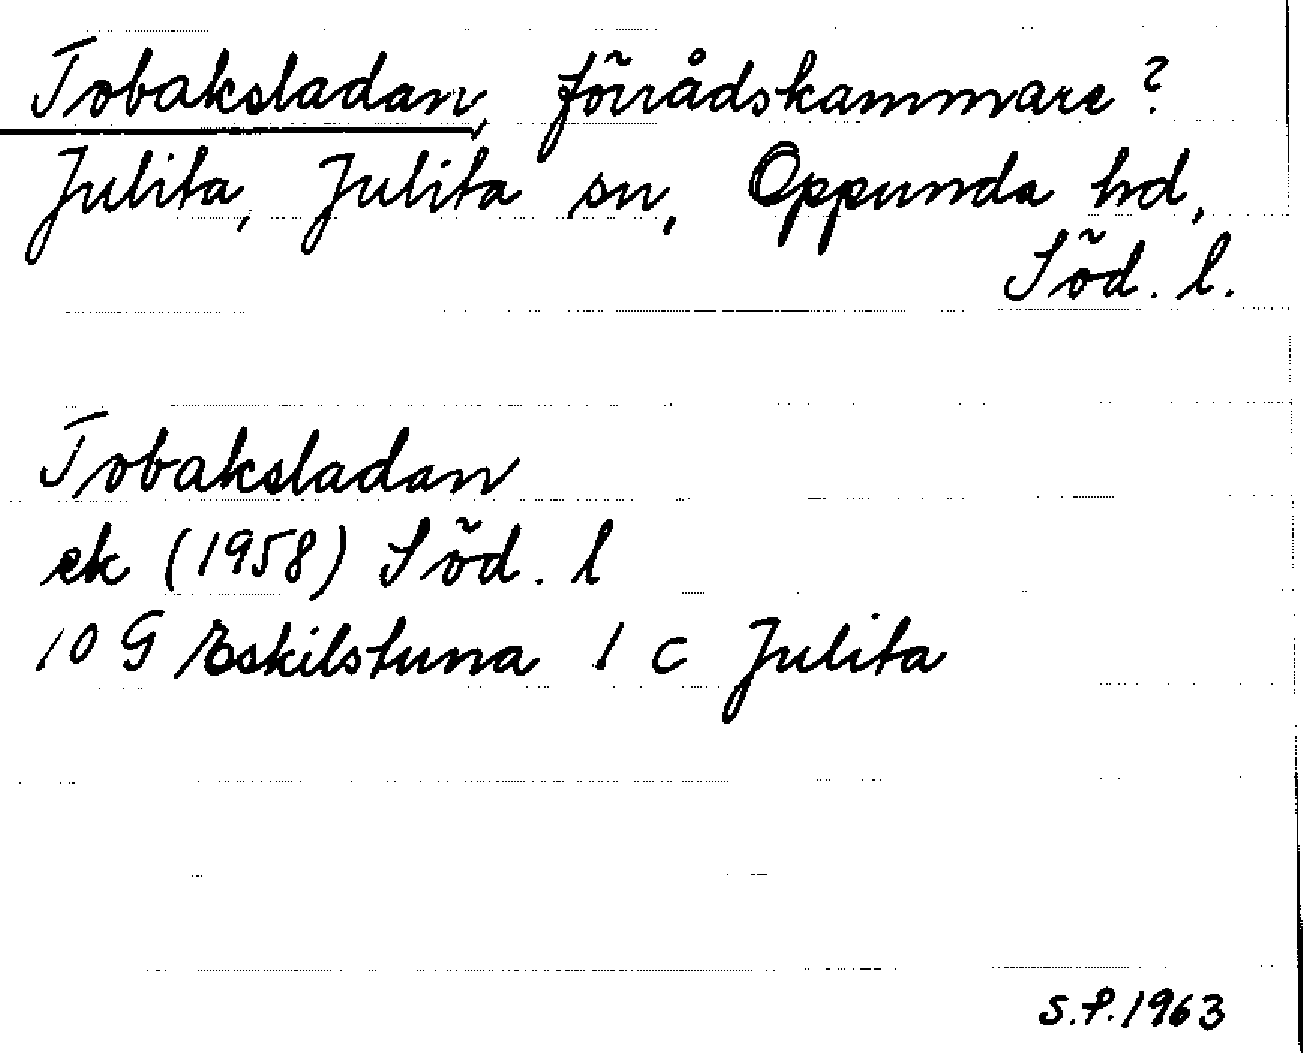 Tobaksladan, förrådskammare?
Julita, Julita sn, Oppunda hd,
Söd. l.
Tobaksladan
ek (1958) Söd. l
10 G Eskilstuna 1 c Julita
S.P. 1963